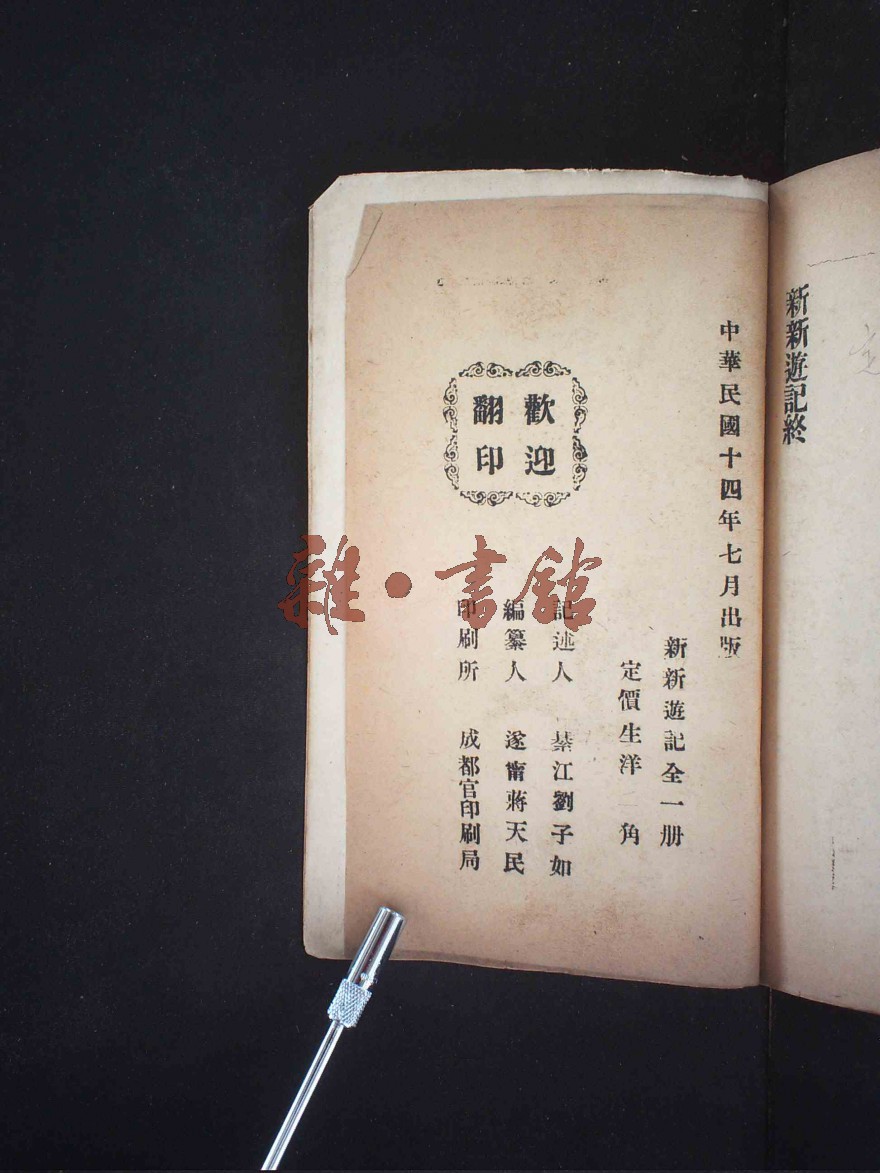 新新遊記終
中華民國十四年七月出版
新新遊記全一册
定價生洋三角
記述人　綦江劉子如
編纂人　遂甯蔣天民
印刷所　成都官印刷局
歡迎
翻印
雜·書舘